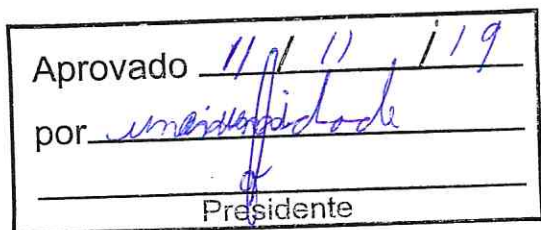 Aprovado 11 / 11 / 19
por unanimidade
Presidente